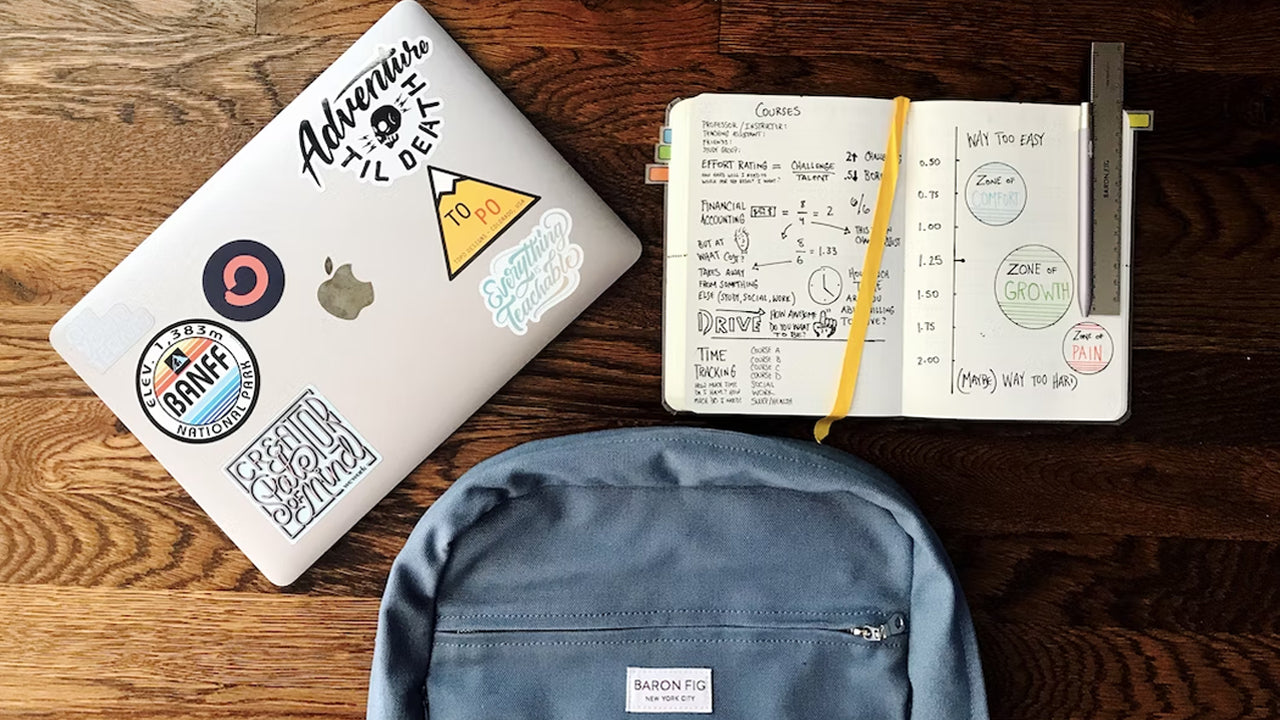 Adventure
'TIL DEATH
TOPO
TOPO DESIGNS - COLORADO, USA
Everything
is
Teachable
ELEV. 1,383m
BANFF
NATIONAL PARK
CREATOR
State
OF
mind
COURSES
PROFESSOR/INSTRUCTOR:
TEACHING ASSISTANT:
FRIENDS:
STUDY GROUP:
EFFORT RATING = CHALLENGE
TALENT
2↑
.5↓
FINANCIAL
ACCOUNTING
= 8/4 = 2
6/6
BUT AT
WHAT COST?
8/6 = 1.33
TAKES AWAY
FROM SOMETHING
ELSE (STUDY, SOCIAL, WORK)
DRIVE
HOW AWESOME
DO YOU WANT
TO BE?
TIME
TRACKING
HOW MUCH TIME
DO I HAVE? HOW
MUCH DO I NEED?
COURSE A
COURSE B
COURSE C
COURSE D
SOCIAL
WORK
SLEEP/HEALTH
WAY TOO EASY
0.50
0.75
1.00
1.25
1.50
1.75
2.00
ZONE OF
COMFORT
ZONE OF
GROWTH
ZONE OF
PAIN
(MAYBE) WAY TOO HARD
BARON FIG
BARON FIG
NEW YORK CITY